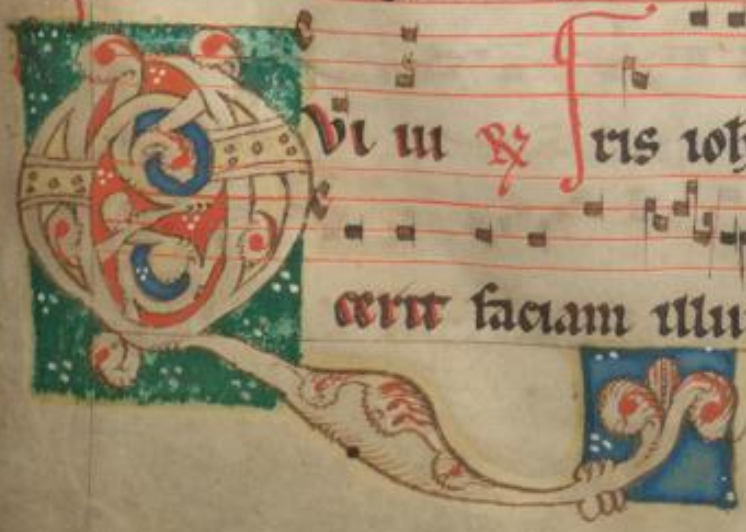 Qui ui ℟ Iris ioh
cerit faciam illu